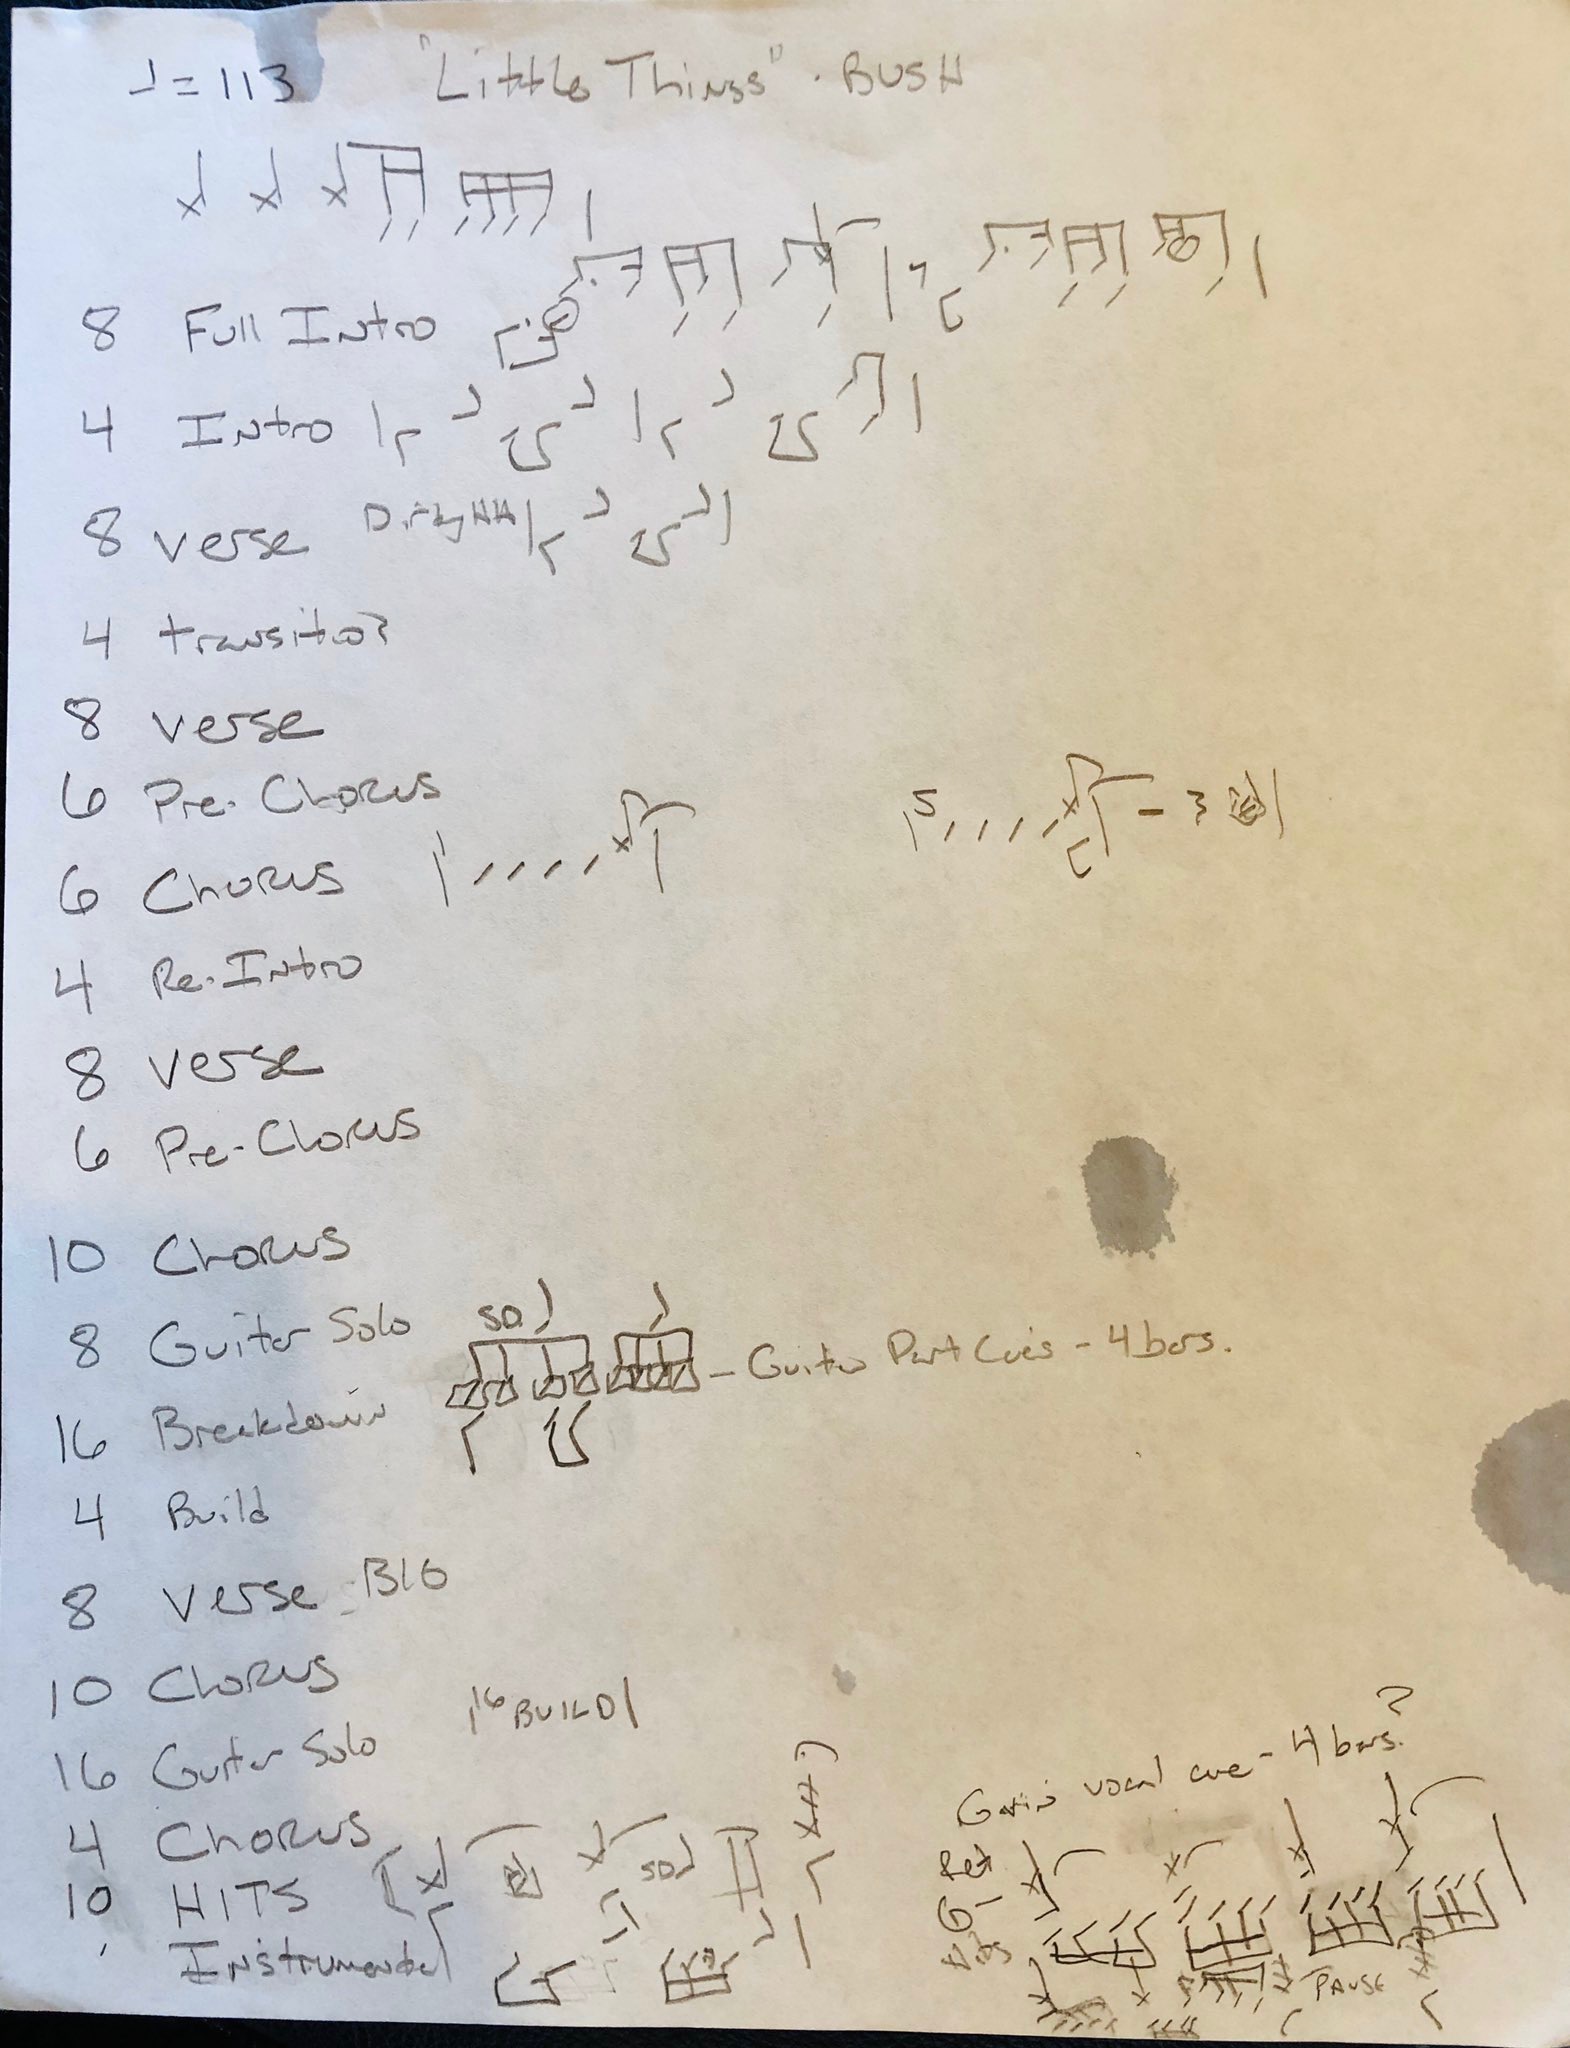 ♩=113 "Little Things" · BUSH
8 Full Intro
4 Intro
8 Verse Dirty HH
4 transition
8 Verse
6 Pre-Chorus
6 Chorus
4 Re-Intro
8 Verse
6 Pre-Chorus
10 Chorus
8 Guitar Solo
16 Breakdown - Guitar Part Cues - 4 bars.
4 Build
8 Verse - BIG
10 Chorus
16 Guitar Solo 16 BUILD
4 Chorus
Gavin vocal cue - 4 bars?
10 HITS
Instrumental
PAUSE